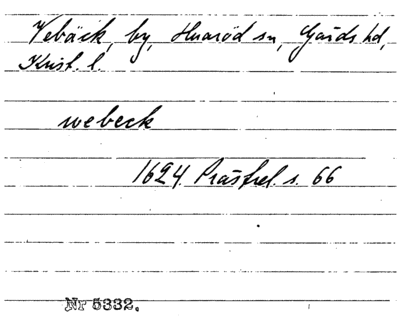 Vebäck, by, Huaröd sn, Gärds hd,
Krist. l.
webeck
1624 Prästrel. s. 66
Nr 5332.